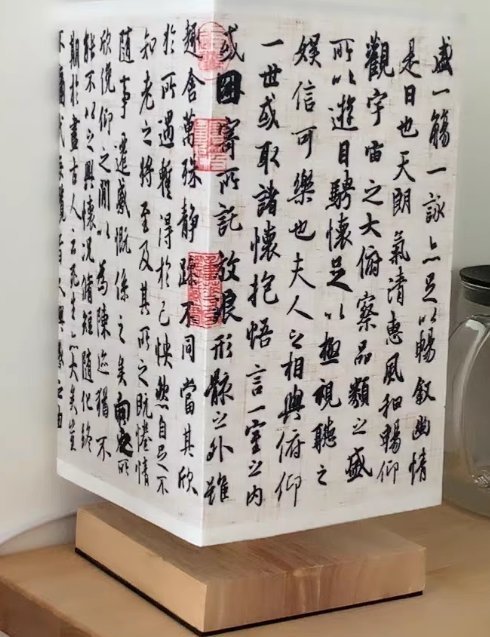 盛一觴一詠亦足以暢叙幽情
是日也天朗氣清惠風和暢仰
觀宇宙之大俯察品類之盛
所以遊目騁懷足以極視聽之
娛信可樂也夫人之相與俯仰
一世或取諸懷抱悟言一室之內
或因寄所託放浪形骸之外雖
趣舍萬殊靜躁不同當其欣
於所遇暫得於己快然自足不
知老之將至及其所之既惓情
隨事遷感慨係之矣向之所
欣俛仰之間以為陳迹猶不
能不以之興懷況脩短隨化終
期於盡古人云死生亦大矣豈
不痛哉每攬昔人興感之由